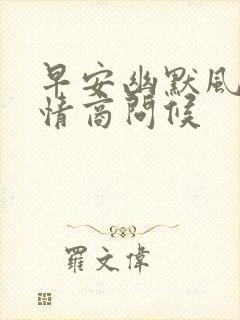 早安幽默風
情商問候
羅文偉